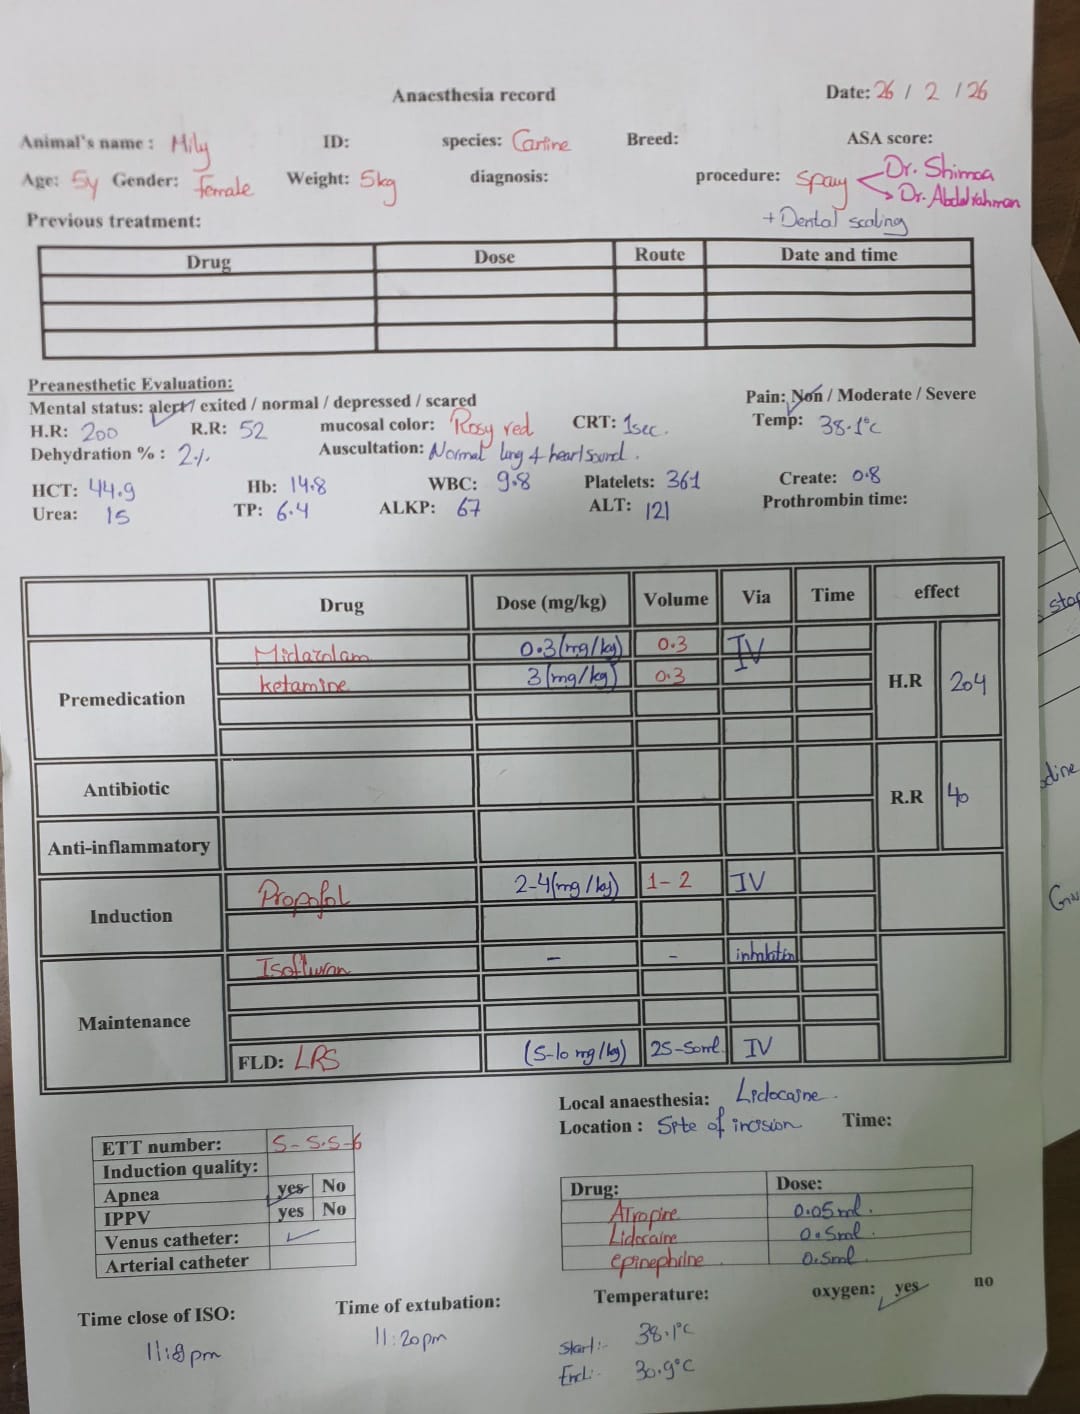 Anaesthesia record
Date: 26 / 2 / 26
Animal's name : Mily ID: species: Canine Breed: ASA score:
Age: 5y Gender: female Weight: 5kg diagnosis: procedure: spay Dr. Shimaa
Dr. Abdelrahman
+ Dental scaling
Previous treatment:
Drug Dose Route Date and time
Preanesthetic Evaluation:
Mental status: alert / exited / normal / depressed / scared Pain: Non / Moderate / Severe
H.R: 200 R.R: 52 mucosal color: Rosy red CRT: 1sec. Temp: 38.1°C
Dehydration % : 2% Auscultation: Normal lung & heart sound.
HCT: 44.9 Hb: 14.8 WBC: 9.8 Platelets: 361 Create: 0.8
Urea: 15 TP: 6.4 ALKP: 67 ALT: 121 Prothrombin time:
Drug Dose (mg/kg) Volume Via Time effect
Premedication
Midazolam 0.3 (mg/kg) 0.3 IV
ketamine 3 (mg/kg) 0.3
H.R 204
Antibiotic
R.R 40
Anti-inflammatory
Induction
Propofol 2-4 (mg/kg) 1-2 IV
Maintenance
Isofluran - - inhalation
FLD: LRS (5-10 mg/kg) 25-50ml IV
Local anaesthesia: Lidocaine.
Location : Site of incision Time:
ETT number: 5-5.5-6
Induction quality:
Apnea yes No
IPPV yes No
Venus catheter: ✓
Arterial catheter
Drug: Dose:
Atropine 0.05ml.
Lidocaine 0.5ml.
epinephrine 0.5ml
Time close of ISO: Time of extubation: Temperature: oxygen: yes no
11:20pm
Start:- 38.1°C
End:- 30.9°C
stop
odine